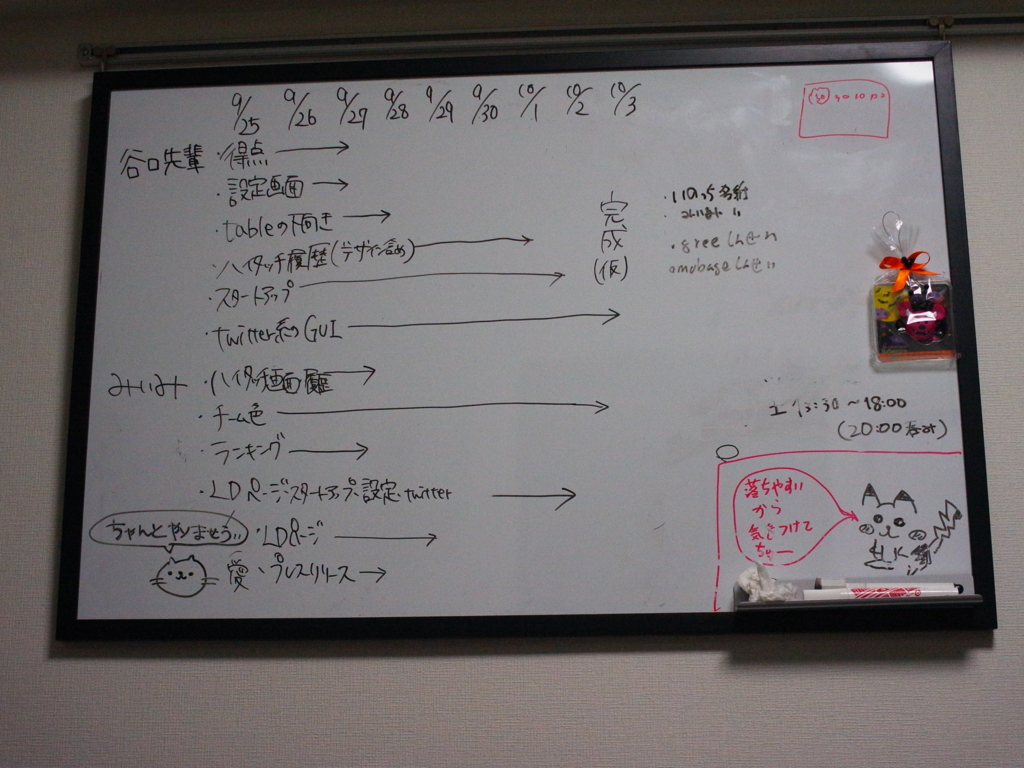 9/25 9/26 9/27 9/28 9/29 9/30 10/1 10/2 10/3
谷口先輩 ・得点
・設定画面
・tableの下向き
・ハイタッチ履歴(デザイン含め)
・スタートアップ
・twitter系のGUI
完成(仮)
みいみ ・ハイタッチ画面履歴
・チーム色
・ランキング
・LDページ・スタートアップ・設定・twitter
ちゃんとやりませう。
・LDページ
愛 ・プレスリリース
土 13:30〜18:00
(20:00
落ちやすい
から
気をつけて
ちょー